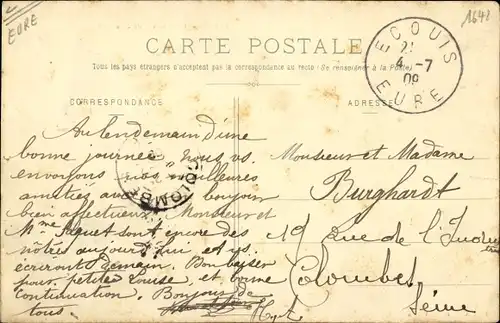 EURE
1648
ECOUIS
4-7
09
EURE
CARTE POSTALE
Tous les pays étrangers n'acceptent pas la correspondance au recto (Se renseigner à la Poste)
CORRESPONDANCE
ADRESSE
Au lendemain d'une
bonne journée nous vs.
envoyons nos meilleures
amitiés avec bonjour
bien affectueux. Monsieur et
Mme Paquet sont encore des
nôtres aujourd'hui et vs.
écriront demain. Bon baiser
pour petite Louise et bonne
continuation. Bonjour de
tous.
COLOMBES
Monsieur et Madame
Burghardt
19 Rue de l'Industrie
Colombes
Seine